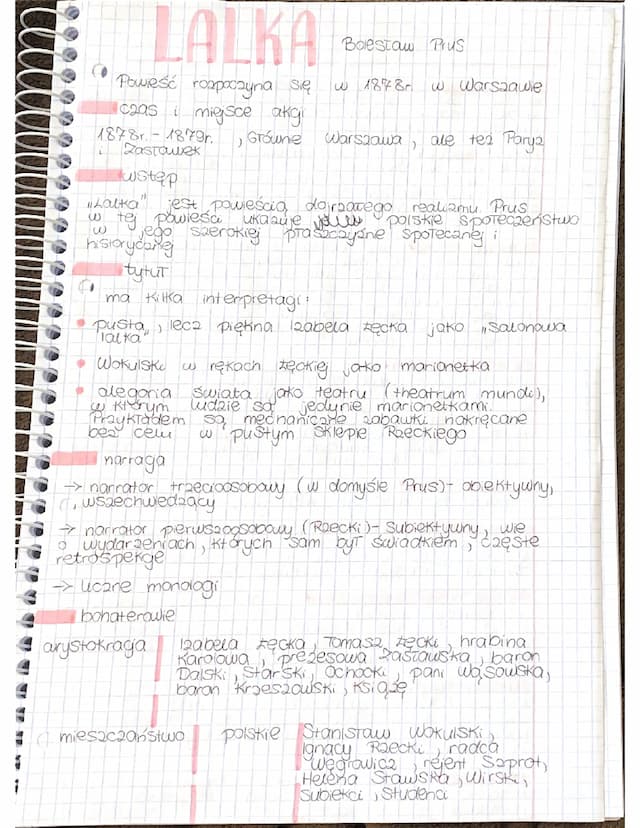 LALKA Bolesław Prus
Powieść rozpoczyna się w 1878r. w Warszawie
czas i miejsce akcji
1878r. - 1879r. , Główne Warszawa , ale też Paryż
i Zasławek
wstęp
„Lalka" jest powieścią dojrzałego realizmu Prus
w tej powieści ukazuje polskie społeczeństwo
w jego szerokiej płaszczyźnie społecznej i
historycznej
tytuł
ma kilka interpretacji:
• pusta , lecz piękna Izabela Łęcka jako „salonowa
lalka"
• Wokulski w rękach Łęckiej jako marionetka
• alegoria świata jako teatru (theatrum mundi),
w którym ludzie są jedynie marionetkami.
Przykładem są mechaniczne zabawki nakręcane
bez celu w pustym sklepie Rzeckiego
narracja
→ narrator trzecioosobowy (w domyśle Prus) - obiektywny,
wszechwiedzący
→ narrator pierwszoosobowy (Rzecki) - subiektywny, wie
o wydarzeniach, których sam był świadkiem, częste
retrospekcje
→ liczne monologi
bohaterowie
arystokracja Izabela Łęcka, Tomasz Łęcki, hrabina
Karolowa, prezesowa Zasławska, baron
Dalski, Starski, Ochocki, pani Wąsowska,
baron Krzeszowski, Książę
mieszczaństwo polskie Stanisław Wokulski,
Ignacy Rzecki, radca
Węgrowicz, rejent Szprot,
Helena Stawska, Wirski,
subiekci, Studenci